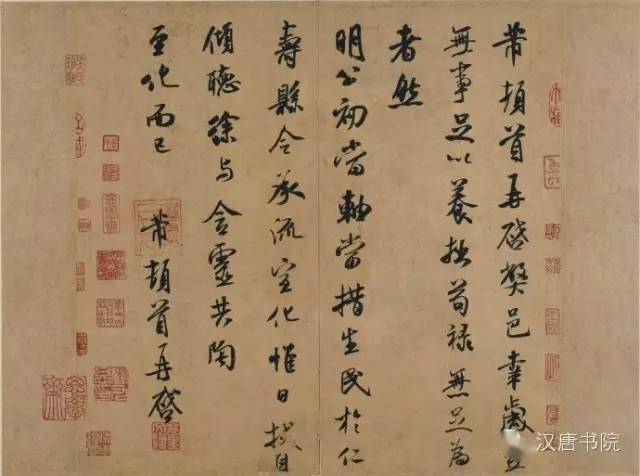 芾頓首再啓弊邑幸歲豐
無事足以養拙苟祿無足為
者然
明公初當軸當措生民於仁
壽縣令承流宣化惟日拭目
傾聽徐与含靈共陶
至化而已
芾頓首再啓
汉唐书院